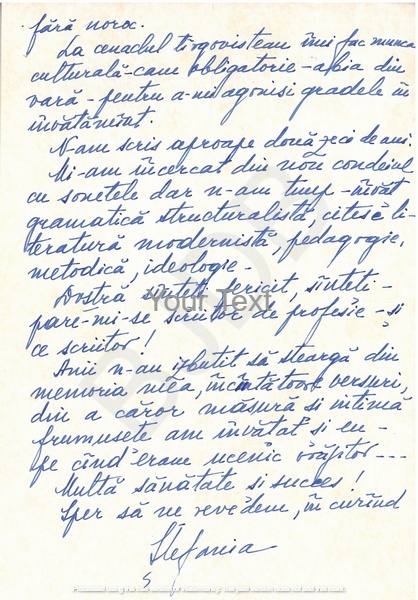 fără noroc.
La cenaclul tîrgoviștean îmi fac munca
culturală - cam obligatorie - abia din
vară - pentru a-mi agonisi gradele în
învățămînt.
N-am scris aproape două zeci de ani.
Mi-am încercat din nou condeiul
cu sonetele dar n-am timp - învăț
gramatică structuralistă, citesc li-
teratură modernistă, pedagogie,
metodică, ideologie -
sînteți fericit, sînteți-
pare-mi-se scriitor de profesie - și
ce scriitor!
Anii n-au izbutit să șteargă din
memoria mea, încîntătoare versuri,
din a căror măsură și intimă
frumusețe am învățat și eu -
pe cînd eram ucenic vrăjitor---
Multă sănătate și succes!
Sper să ne revedem, în curînd
Ștefania
Your Text